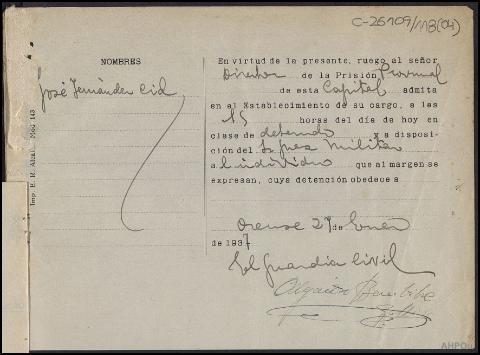 C-26109/118(04)
NOMBRES
José Fernández Cid
Imp. E. M. Abal. Mod 143
En virtud de la presente, ruego al señor
Director de la Prisión Provincial
de esta Capital admita
en el Establecimiento de su cargo, a las
15 horas del día de hoy en
clase de detenido y a disposi-
ción del Sr Juez Militar
al individuo que al margen se
expresan, cuya detención obedece a
Orense 27 de Enero
de 1937
El Guardia Civil
AHPOu